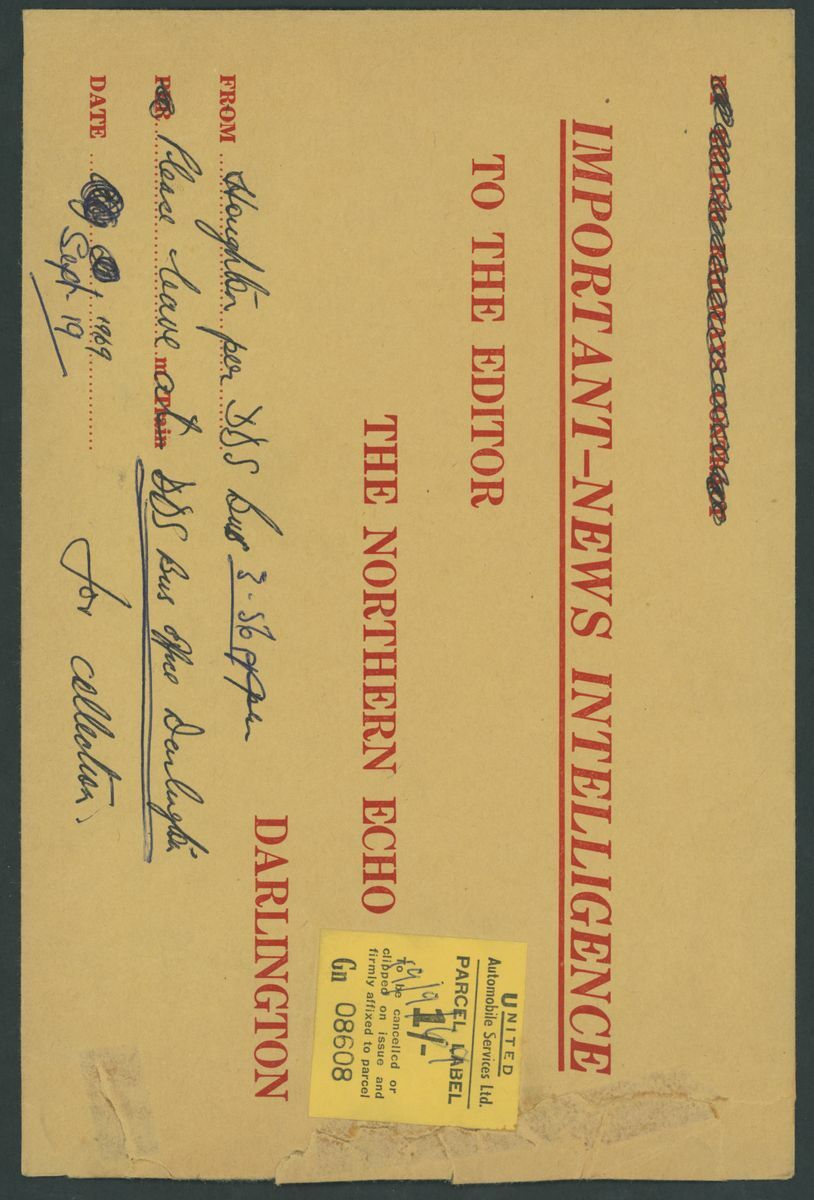 IMPORTANT-NEWS INTELLIGENCE
TO THE EDITOR
THE NORTHERN ECHO
DARLINGTON
UNITED
Automobile Services Ltd.
PARCEL LABEL
1/-
19/9/69
To be cancelled or
clipped on issue and
firmly affixed to parcel
Gn 08608
FROM Houghton per DDS Bus 3-56 pm
Please leave at DDS Bus office Darlington
DATE 1969
Sept 19
for collection